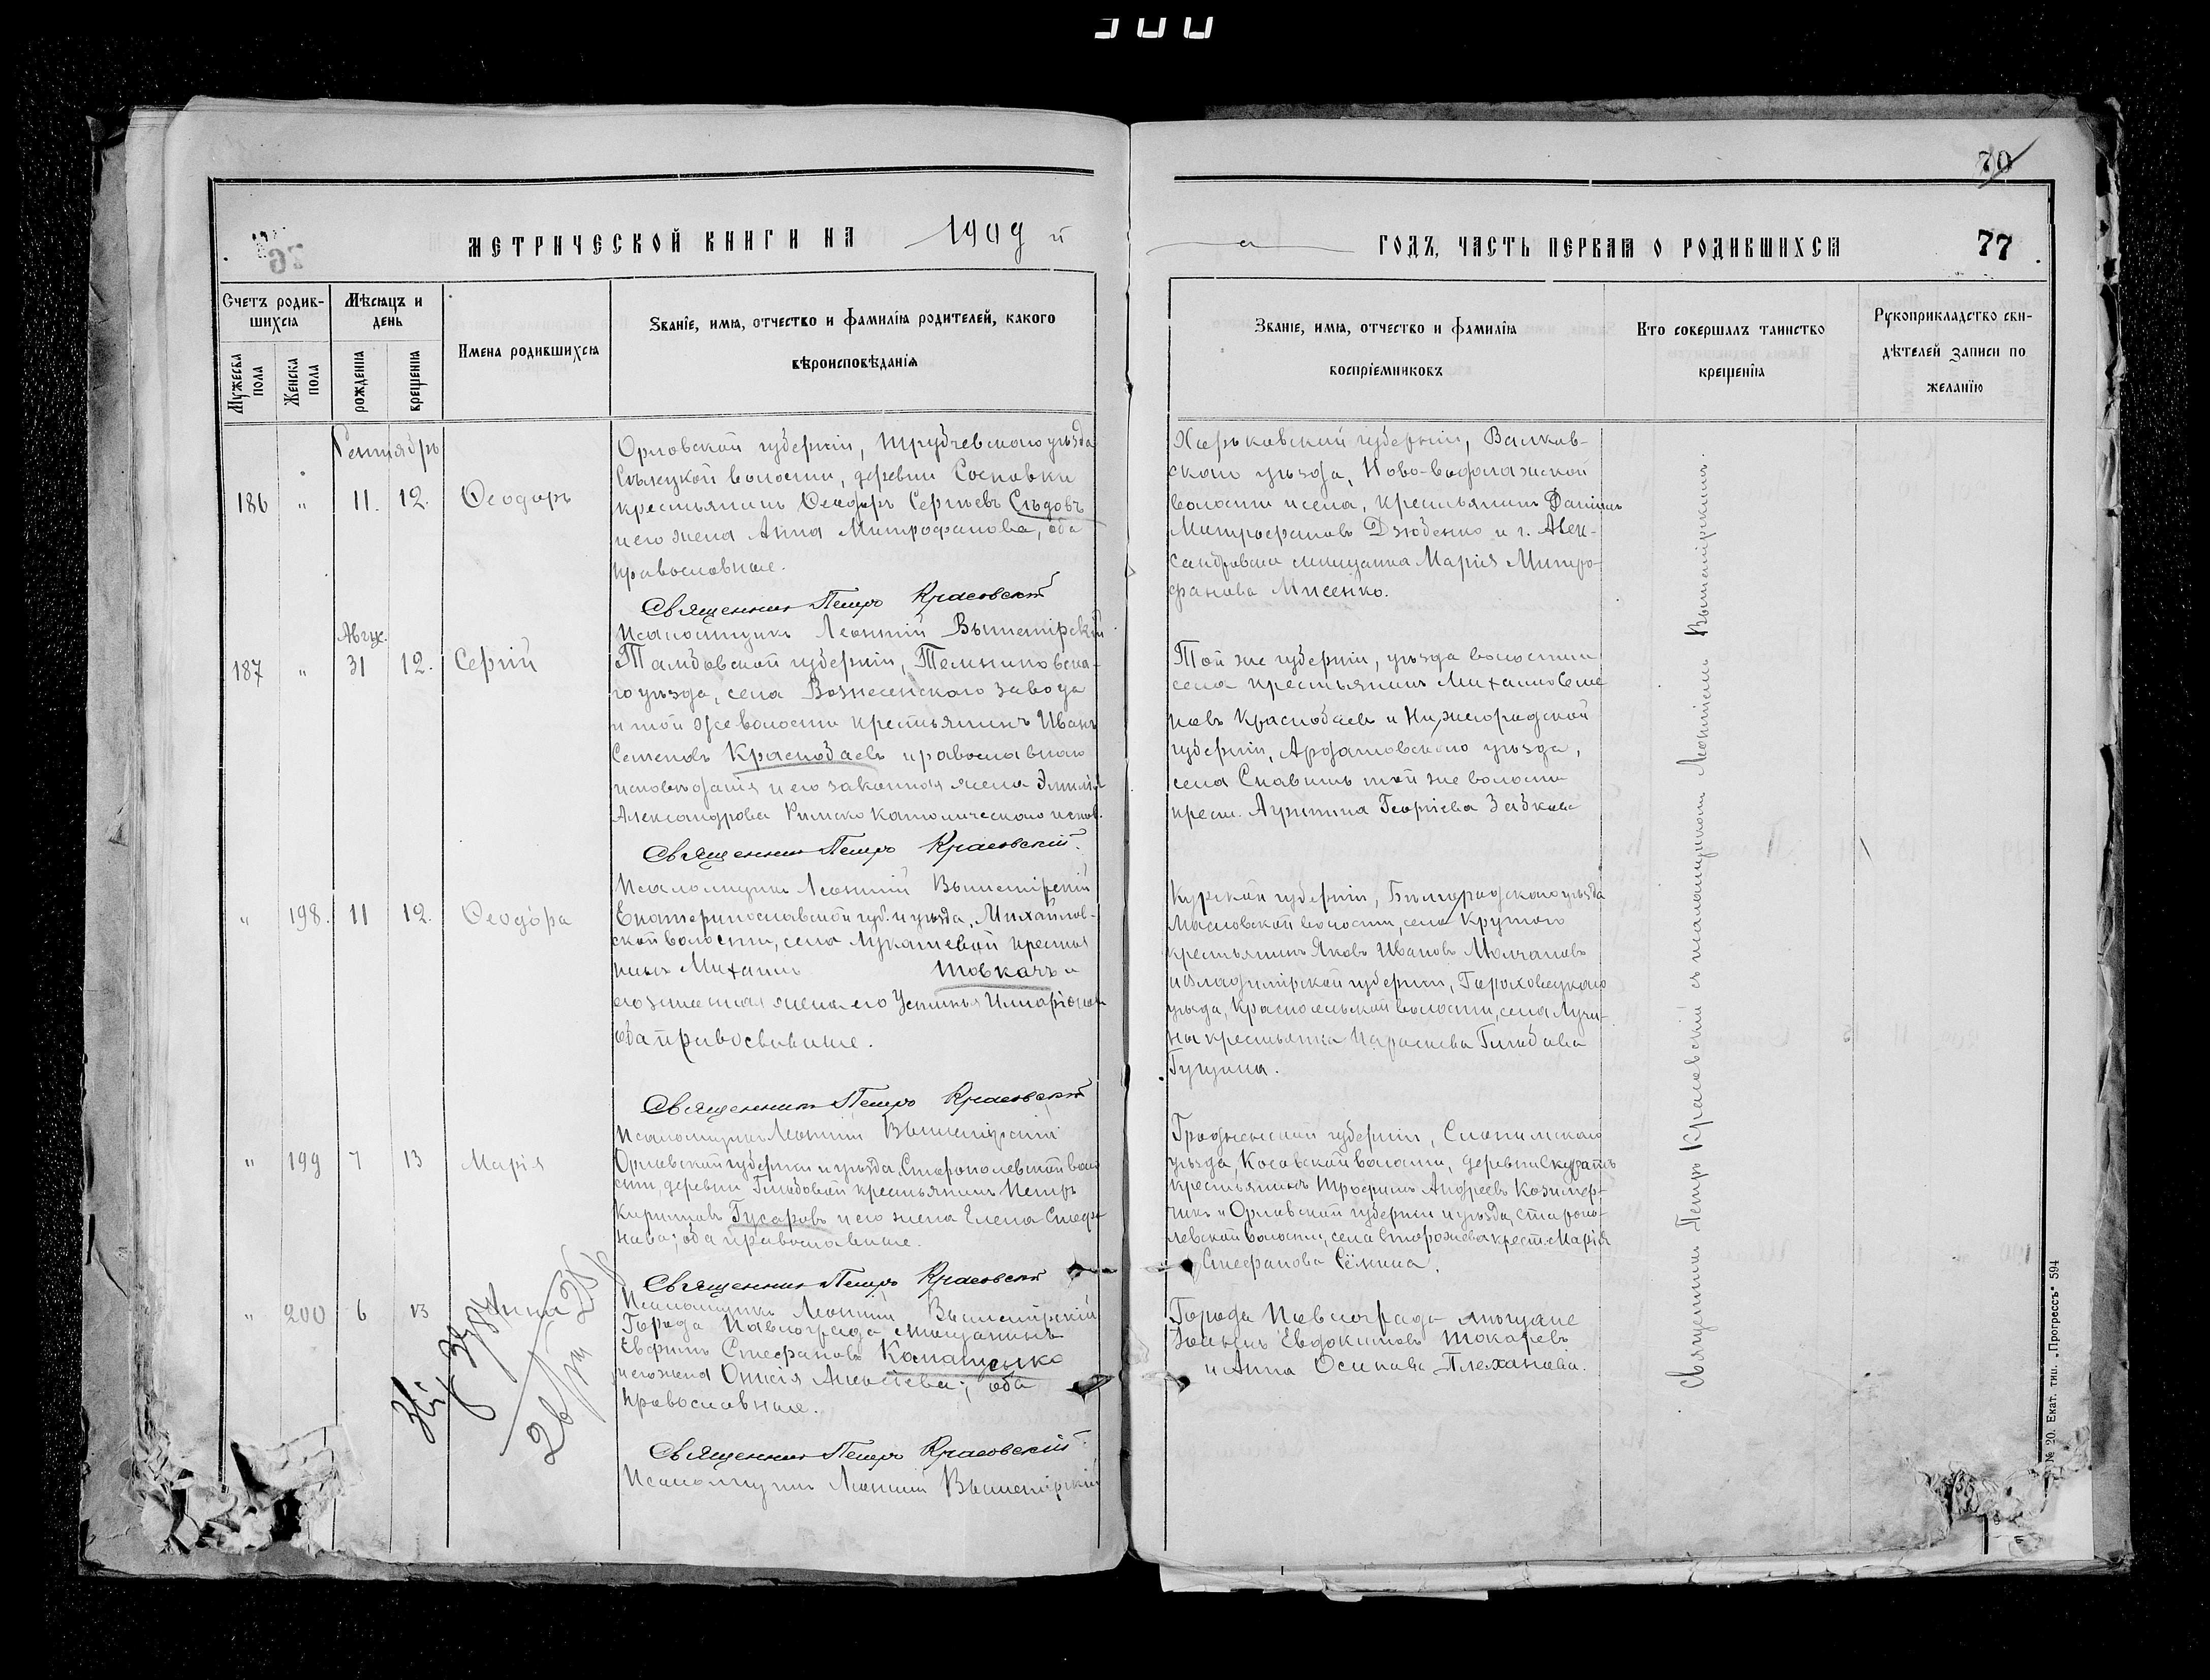 300
70
МЕТРИЧЕСКОЙ КНИГИ НА 1909 й
ГОДЪ, ЧАСТЬ ПЕРВАЯ О РОДИВШИХСЯ 77
Счетъ родив-
шихся
Мѣсяцъ и
день
Имена родившихся
Званіе, имя, отчество и фамилія родителей, какого
вѣроисповѣданія
Мужеска пола
Женска пола
рожденія
крещенія
Званіе, имя, отчество и фамилія
воспріемниковъ
Кто совершалъ таинство
крещенія
Рукоприкладство сви-
дѣтелей записи по
желанію
Сентябрь
186 " 11. 12. Ѳеодоръ
Орловской губерніи, Трубчевскаго уѣзда
волости, деревни Сосновки
крестьянинъ Ѳеодоръ Сергѣевъ Сѣдовъ
и его жена Анна Митрофанова, оба
православные.
Священник Петръ Красовскій
Псаломщикъ Леонтій Вышемірскій
Харьковской губерніи, Валков-
скаго уѣзда, Ново-Водолажской
волости и села, крестьянинъ Даніилъ
Митрофановъ Дзюбенко и г. Алек-
сандровска мѣщанка Марія Митро-
фанова Мисенко.
Авгус.
187 " 31 12. Сергій
Тамбовской губерніи, Темниковска-
го уѣзда, села Вознесенскаго завода
и той же волости крестьянинъ Иванъ
Семеновъ Краснобаевъ православнаго
исповѣданія и его законная жена Эмилія
Александрова Римско католическаго испов.
Священник Петръ Красовскій
Псаломщикъ Леонтій Вышемірскій
Той же губерніи, уѣзда волости и
села крестьянинъ Михаилъ Семе
новъ Краснобаевъ и Нижегородской
губерніи, Ардатовскаго уѣзда,
села той же волости
крест. Георгіева
" 198. 11 12. Ѳеодора
Екатеринославской губ. и уѣзда, Михайлов-
ской волости, села Лукашевой крестья
нинъ Михаилъ Товкачъ и
законная жена его Устинья Иларіонова
оба православные.
Священник Петръ Красовскій
Псаломщикъ Леонтій Вышемірскій
Курской губерніи, Бѣлгородскаго уѣзда
Масловской волости, села Крутого
крестьянинъ Яковъ Ивановъ Молчановъ
и Владимірской губерніи, Гороховецкаго
уѣзда, Красносельской волости, села Лучи-
ны крестьянка Параскева Глѣбова
" 199 7 13 Марія
Орловской губерніи и уѣзда, Старополевской воло
сти, деревни Глѣбовой крестьянинъ Петръ
Кирилловъ Гусаровъ и его жена Елена Стефа
нова; оба православные.
Священник Петръ Красовскій
Псаломщикъ Леонтій Вышемірскій
Гродненской губерніи, Слонимскаго
уѣзда, Косовской волости, деревни
крестьянинъ Трофимъ Андреевъ Козимер-
чикъ и Орловской губерніи и уѣзда, Старопо-
левской волости, села Сторожева крест. Марія
Стефанова Сёмина.
" 200 6 13 Анна
Города Павлограда мѣщанинъ
Ефримъ Стефановъ Комашенко
и его жена Онисія Алексѣева; оба
православные.
Священник Петръ Красовскій
Псаломщикъ Леонтій Вышемірскій
Города Павлограда мѣщане
Іоаннъ Евдокимовъ Токаревъ
и Анна Осипова Плеханова.
Священникъ Петръ Красовскій съ псаломщикомъ Леонтіемъ Вышемірскимъ.
№ 20. Екат. тип. „Прогрессъ" 594